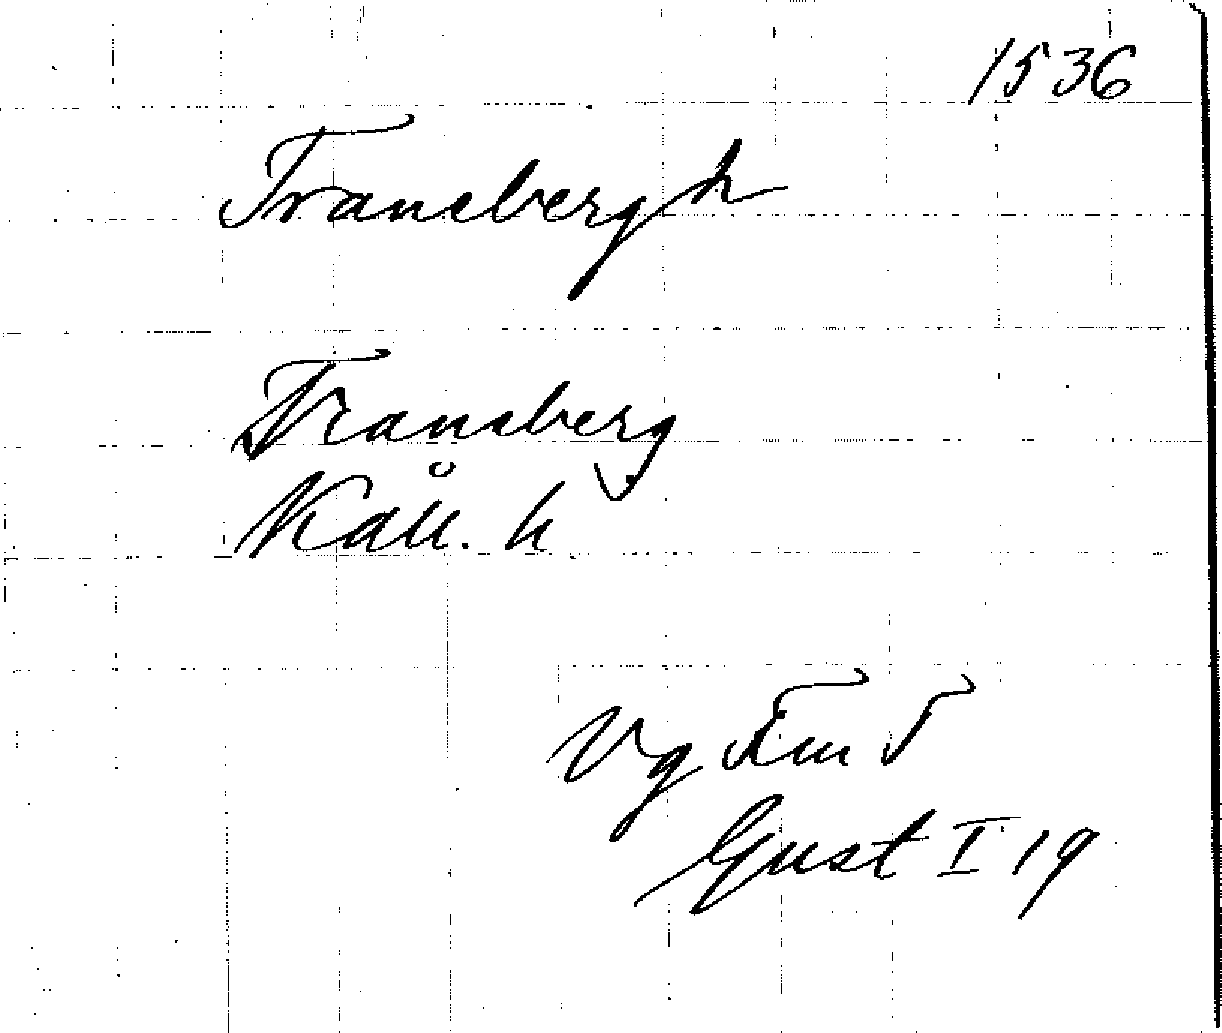 1536
Tranebergh
Traneberg
Kåll. h
Vg
Gust I 19